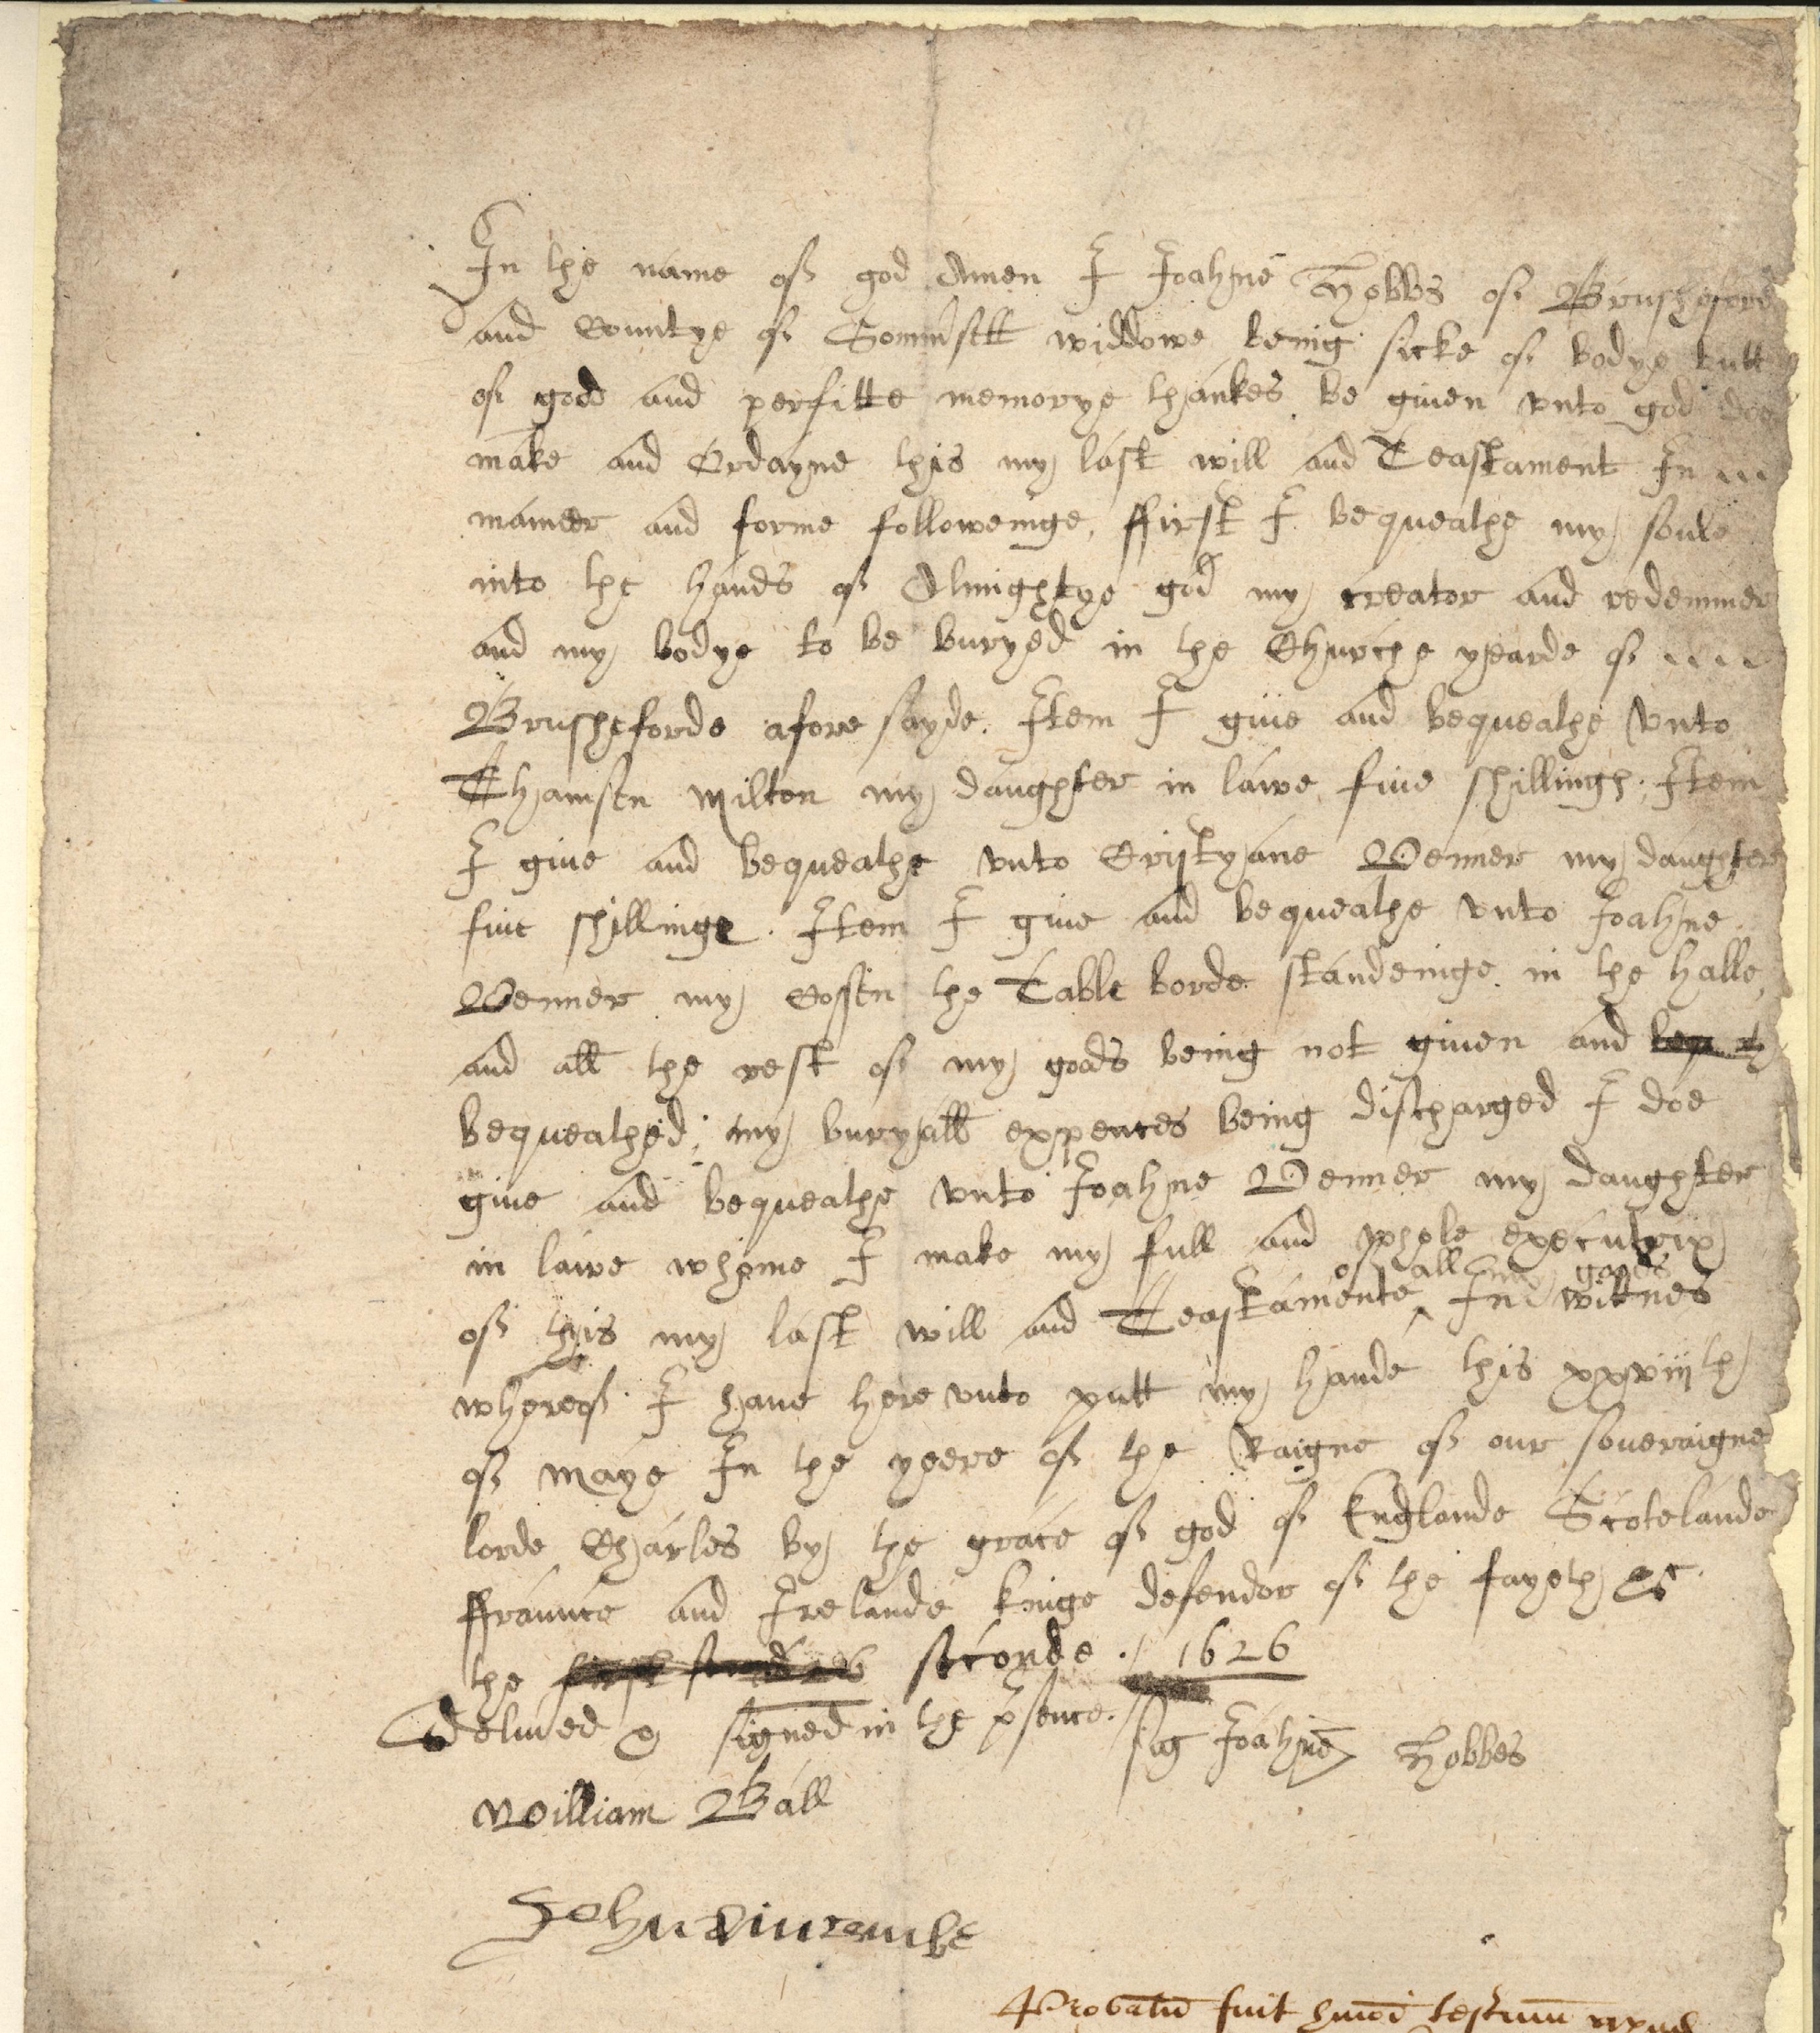 In the name of god Amen I Joahne Hobbs of Brusheford
and Countye of Somms̃tt widdowe being sicke of bodye butt
of god and perfitte memorye thankes be given unto god doe
make and Ordayne this my last will and Teastament In
manner and forme followeinge, ffirst I bequeathe my soule
into the hands of Almightye god my creator and redemmer
and my bodye to be buryed in the Churche yearde of
Brusheforde afore sayde. Item I giue and bequeathe vnto
Thamsen Milton my daughter in lawe fiue shillings. Item
I giue and bequeathe vnto Cristyane Venner my daughter
fiue shillings. Item I giue and bequeathe vnto Joahne
Venner my Cossen the Table borde standeinge in the halle
and all the rest of my goods being not giuen and
bequeathed; my buryall expences being discharged I doe
giue and bequeathe vnto Joahne Venner my daughter
in lawe whome I make my full and whole executrix
of all my goods
of this my last will and Teastamente ^ In wittnes
whereof I haue here vnto putt my hande this xxviijth
of Maye In the yeere of the Raigne of our soueraigne
lorde Charles by the grace of god of Englande Scotelande
ffraunce and Irelande kinge defendor of the fayeth &c
the seconde. 1626
deliued & signed in the p̃sence.
sig Joahne Hobbes
William Ball
John
Probatũ fuit hmõi testum apud